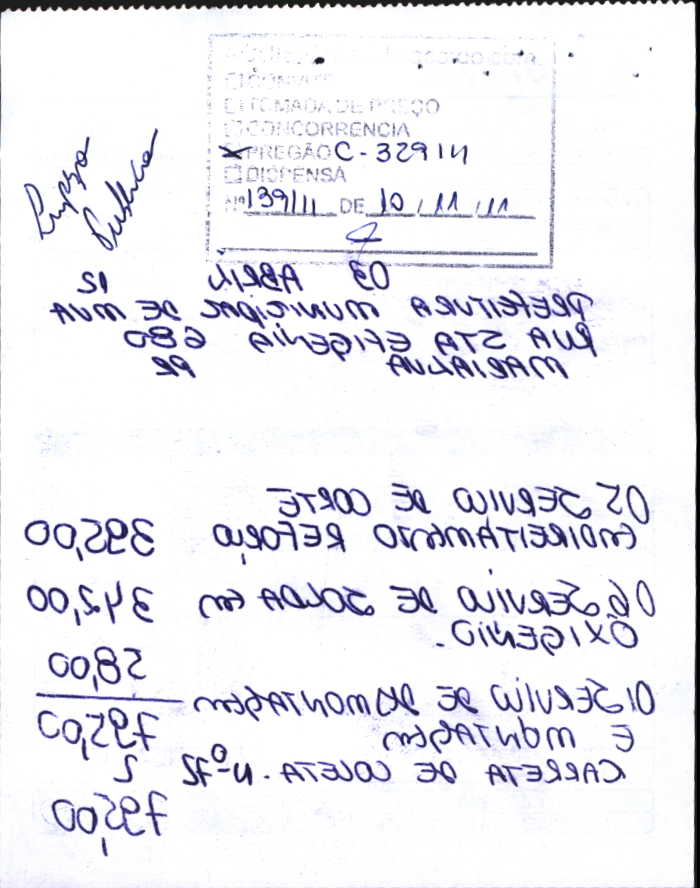 ☐ CONVITE
☐ TOMADA DE PREÇO
☐ CONCORRENCIA
☒ PREGÃO C - 329 14
☐ DISPENSA
Nº 139/11 DE 10 / 11 / 11
Limpeza
Publica
03 ABRIL 12
PREFEITURA MUNICIPAL DE MVA
RUA STA EFIGENIA 680
MARIALVA PR
05 SERVIÇO DE CORTE
ENDIREITAMENTO REFORÇO 395,00
06 SERVIÇO DE SOLDA EM 342,00
OXIGENIO.
58,00
01 SERVIÇO DE DESMONTAGEM
E MONTAGEM 795,00
CARRETA DE COLETA. Nº 12
795,00